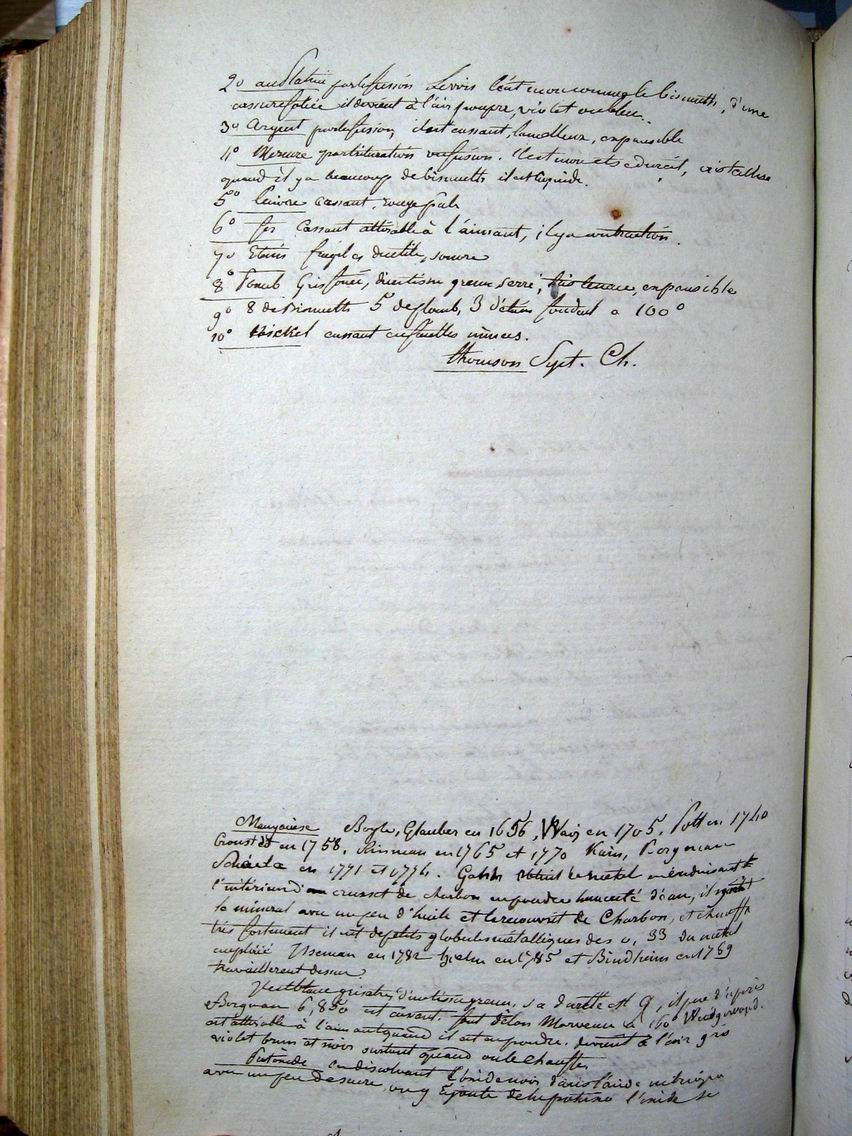 2º au Platine par la fusion Lewis l'étain comme le bismuth, d'une
cassure foliée il devient à l'air pourpre, violet ou bleu.
3º Argent par la fusion, il est cassant, lamelleux, expansible
4º Mercure par trituration ou fusion. Il est mou et se durcit, cristallise
quand il y a beaucoup de bismuth il est liquide.
5º Cuivre cassant, rouge pale
6º fer Cassant attirable à l'aimant, il y a contraction.
7º Etain fragile, ductile, sonore
8º Plomb Gris foncé, d'un tissu grenu serré, très tenace, expansible
9º 8 de Bismuth 5 de plomb, 3 d'étain fondent a 100º
10º Nickel cassant en feuilles minces.
thomson Syst. Ch.
Manganèse Boyle, Glauber en 1656, Waiz en 1705, Pott en 1740
Cronstedt en 1758, Rinman en 1765 et 1770 Kaim, Bergman
Scheele en 1771 et 1774. Gahn obtint le métal en enduisant
l'intérieur d'un creuset de charbon en poudre humecté d'eau, il y mit
le minéral avec un peu d'huile et le recouvrit de Charbon, et chauffa
très fortement il eut de petits globules métalliques des 0,33 du métal
employé Ilseman en 1782 hielm en 1785 et Bindheim en 1789
travaillerent dessus.
Il est blanc grisatre, d'un tissu grenu, sa dureté est 8, il pese d'après
Bergman 6,850 est cassant. fond selon Morveau à 160º Wedgwood.
est attirable à l'aimant quand il est en poudre. devient à l'air gris
violet brun et noir surtout quand on le chauffe.
Protoxide en dissolvant l'oxide noir dans l'acide nitrique
avec un peu de sucre, on y ajoute de la potasse l'oxide se